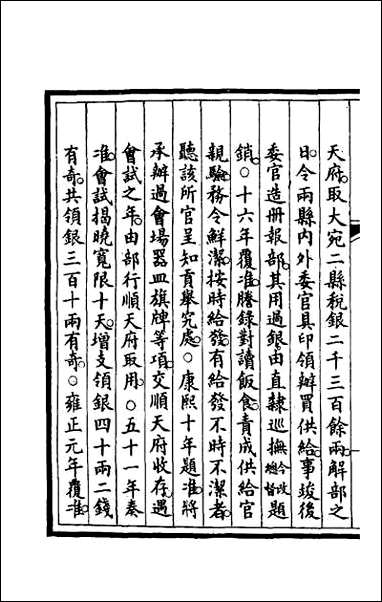 天府取大宛二縣稅銀二千三百餘兩解部之
日令兩縣內外委官具印領辦買供給事竣後
委官造冊報部其用過銀由直隸巡撫今改總督題
銷○十六年覆准謄錄對讀飯食責成供給官
親驗務令鮮潔按時給發有給發不時不潔者
聽該所官呈知貢舉究處○康熙十年題准將
承辦過會場器皿旗牌等項交順天府收存遇
會試之年由部行順天府取用○五十一年奏
准會試揭曉寬限十天增支領銀四十兩二錢
有奇共領銀三百十兩有奇○雍正元年覆准